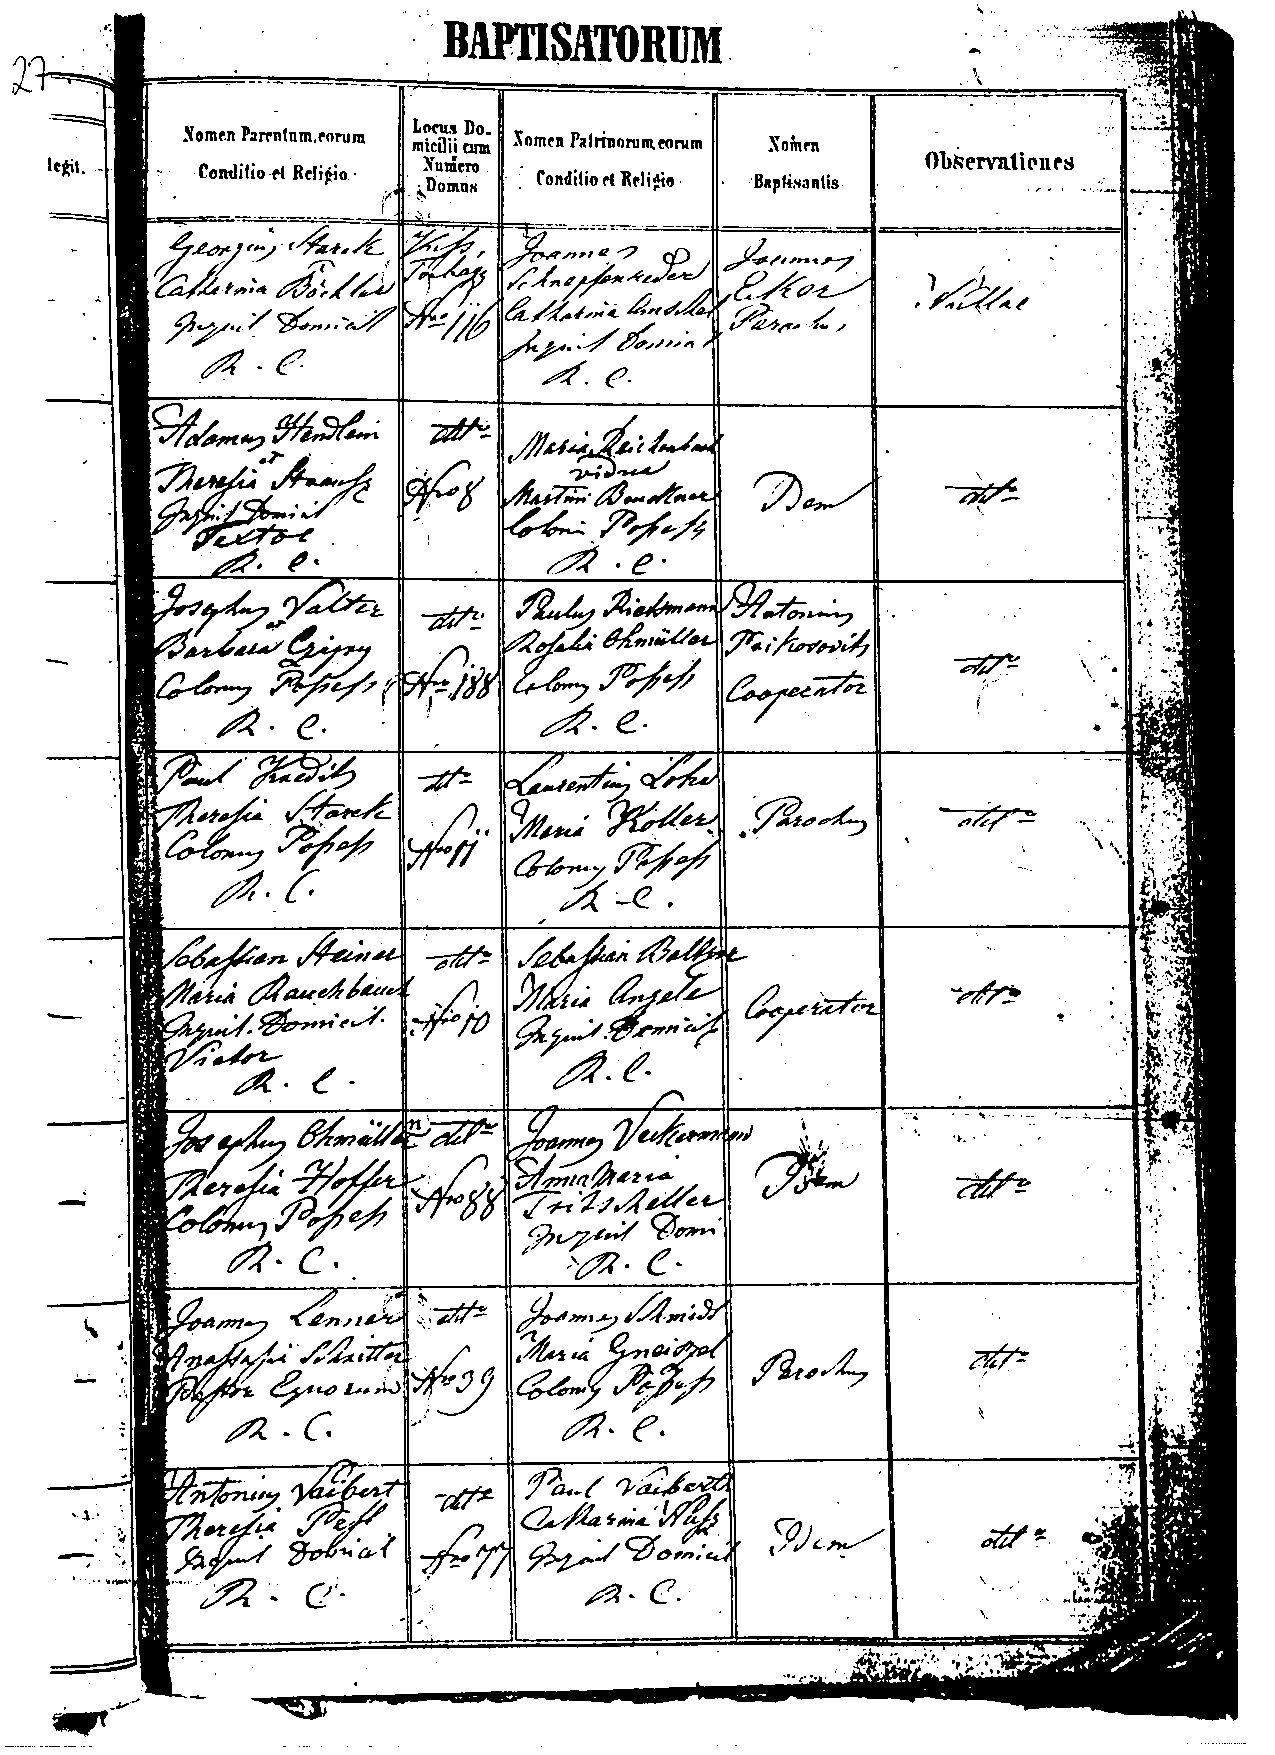 27
BAPTISATORUM
legit.
Nomen Parentum, eorum
Conditio et Religio
Locus Do-
micilii cum
Numero
Domus
Nomen Patrinorum, eorum
Conditio et Religio
Nomen
Baptisantis
Observationes
Georgius Starck
Catharina Böchler
Inquil Domicil
R. C.
Kiss,
Nro 116
Joannes
Schnepfenreder
Catharina
Inquil Domicil
R. C.
Joannes
Parochus
Nullae
Adamus Hendlein
et
Theresia Strausz
Inquil Domicil
Textor
R. C.
dtto
Nro 8
Maria Reichenbach
vidua
Martini Bruckner
Coloni Possess
R. C.
Idem
dtto
Josephus Valter
et
Barbara
Colonus Possess
R. C.
dtto
Nro 188
Paulus
Rosalia Ohmüller
Colonus Possess
R. C.
Antonius
Cooperator
dtto
Paul
Theresia Starck
Colonus Possess
R. C.
dtto
Nro 11
Laurentius
Maria Koller
Colonus Possess
R. C.
Parochus
dtto
Sebastian Steiner
Maria Rauchbauer
Inquil. Domicil.
Vietor
R. C.
dtto
Nro 10
Sebastian
Maria Angele
Inquil. Domicil
R. C.
Cooperator
dtto
Josephus Ohmüller
Theresia Hoffer
Colonus Possess
R. C.
dtto
Nro 88
Joannes
Anna Maria
Tritscheller
Inquil Domi
R. C.
Idem
dtto
Joannes Lenner
Anastasia Schritter
Pastor Equorum
R. C.
dtto
Nro 39
Joannes Schmidt
Maria
Colonus Possess
R. C.
Parochus
dtto
Antonius Vaibert
Theresia
Inquil Domicil
R. C.
dtto
Nro 77
Paul Vaibert
Catharina
Inquil Domicil
R. C.
Idem
dtto